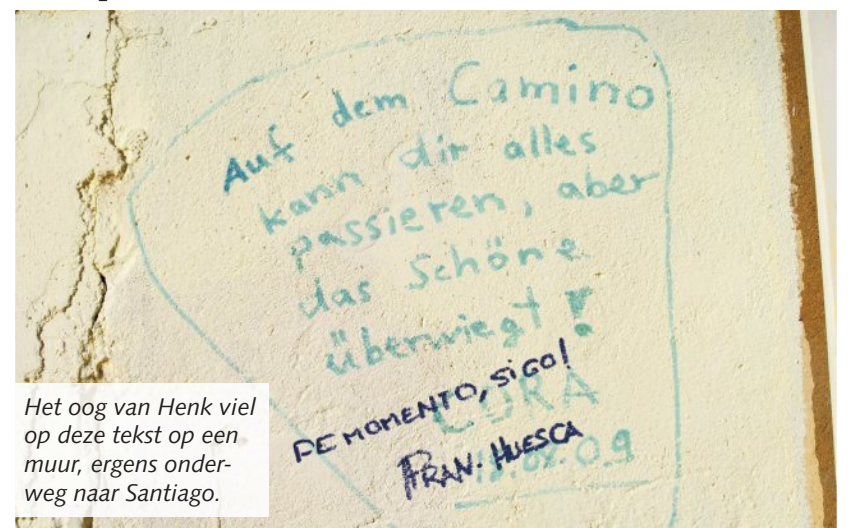 Auf dem Camino
kann dir alles
passieren, aber
das Schöne
überwiegt!
CORA
DE MOMENTO, SIGO!
FRAN. HUESCA
09
Het oog van Henk viel
op deze tekst op een
muur, ergens onder-
weg naar Santiago.